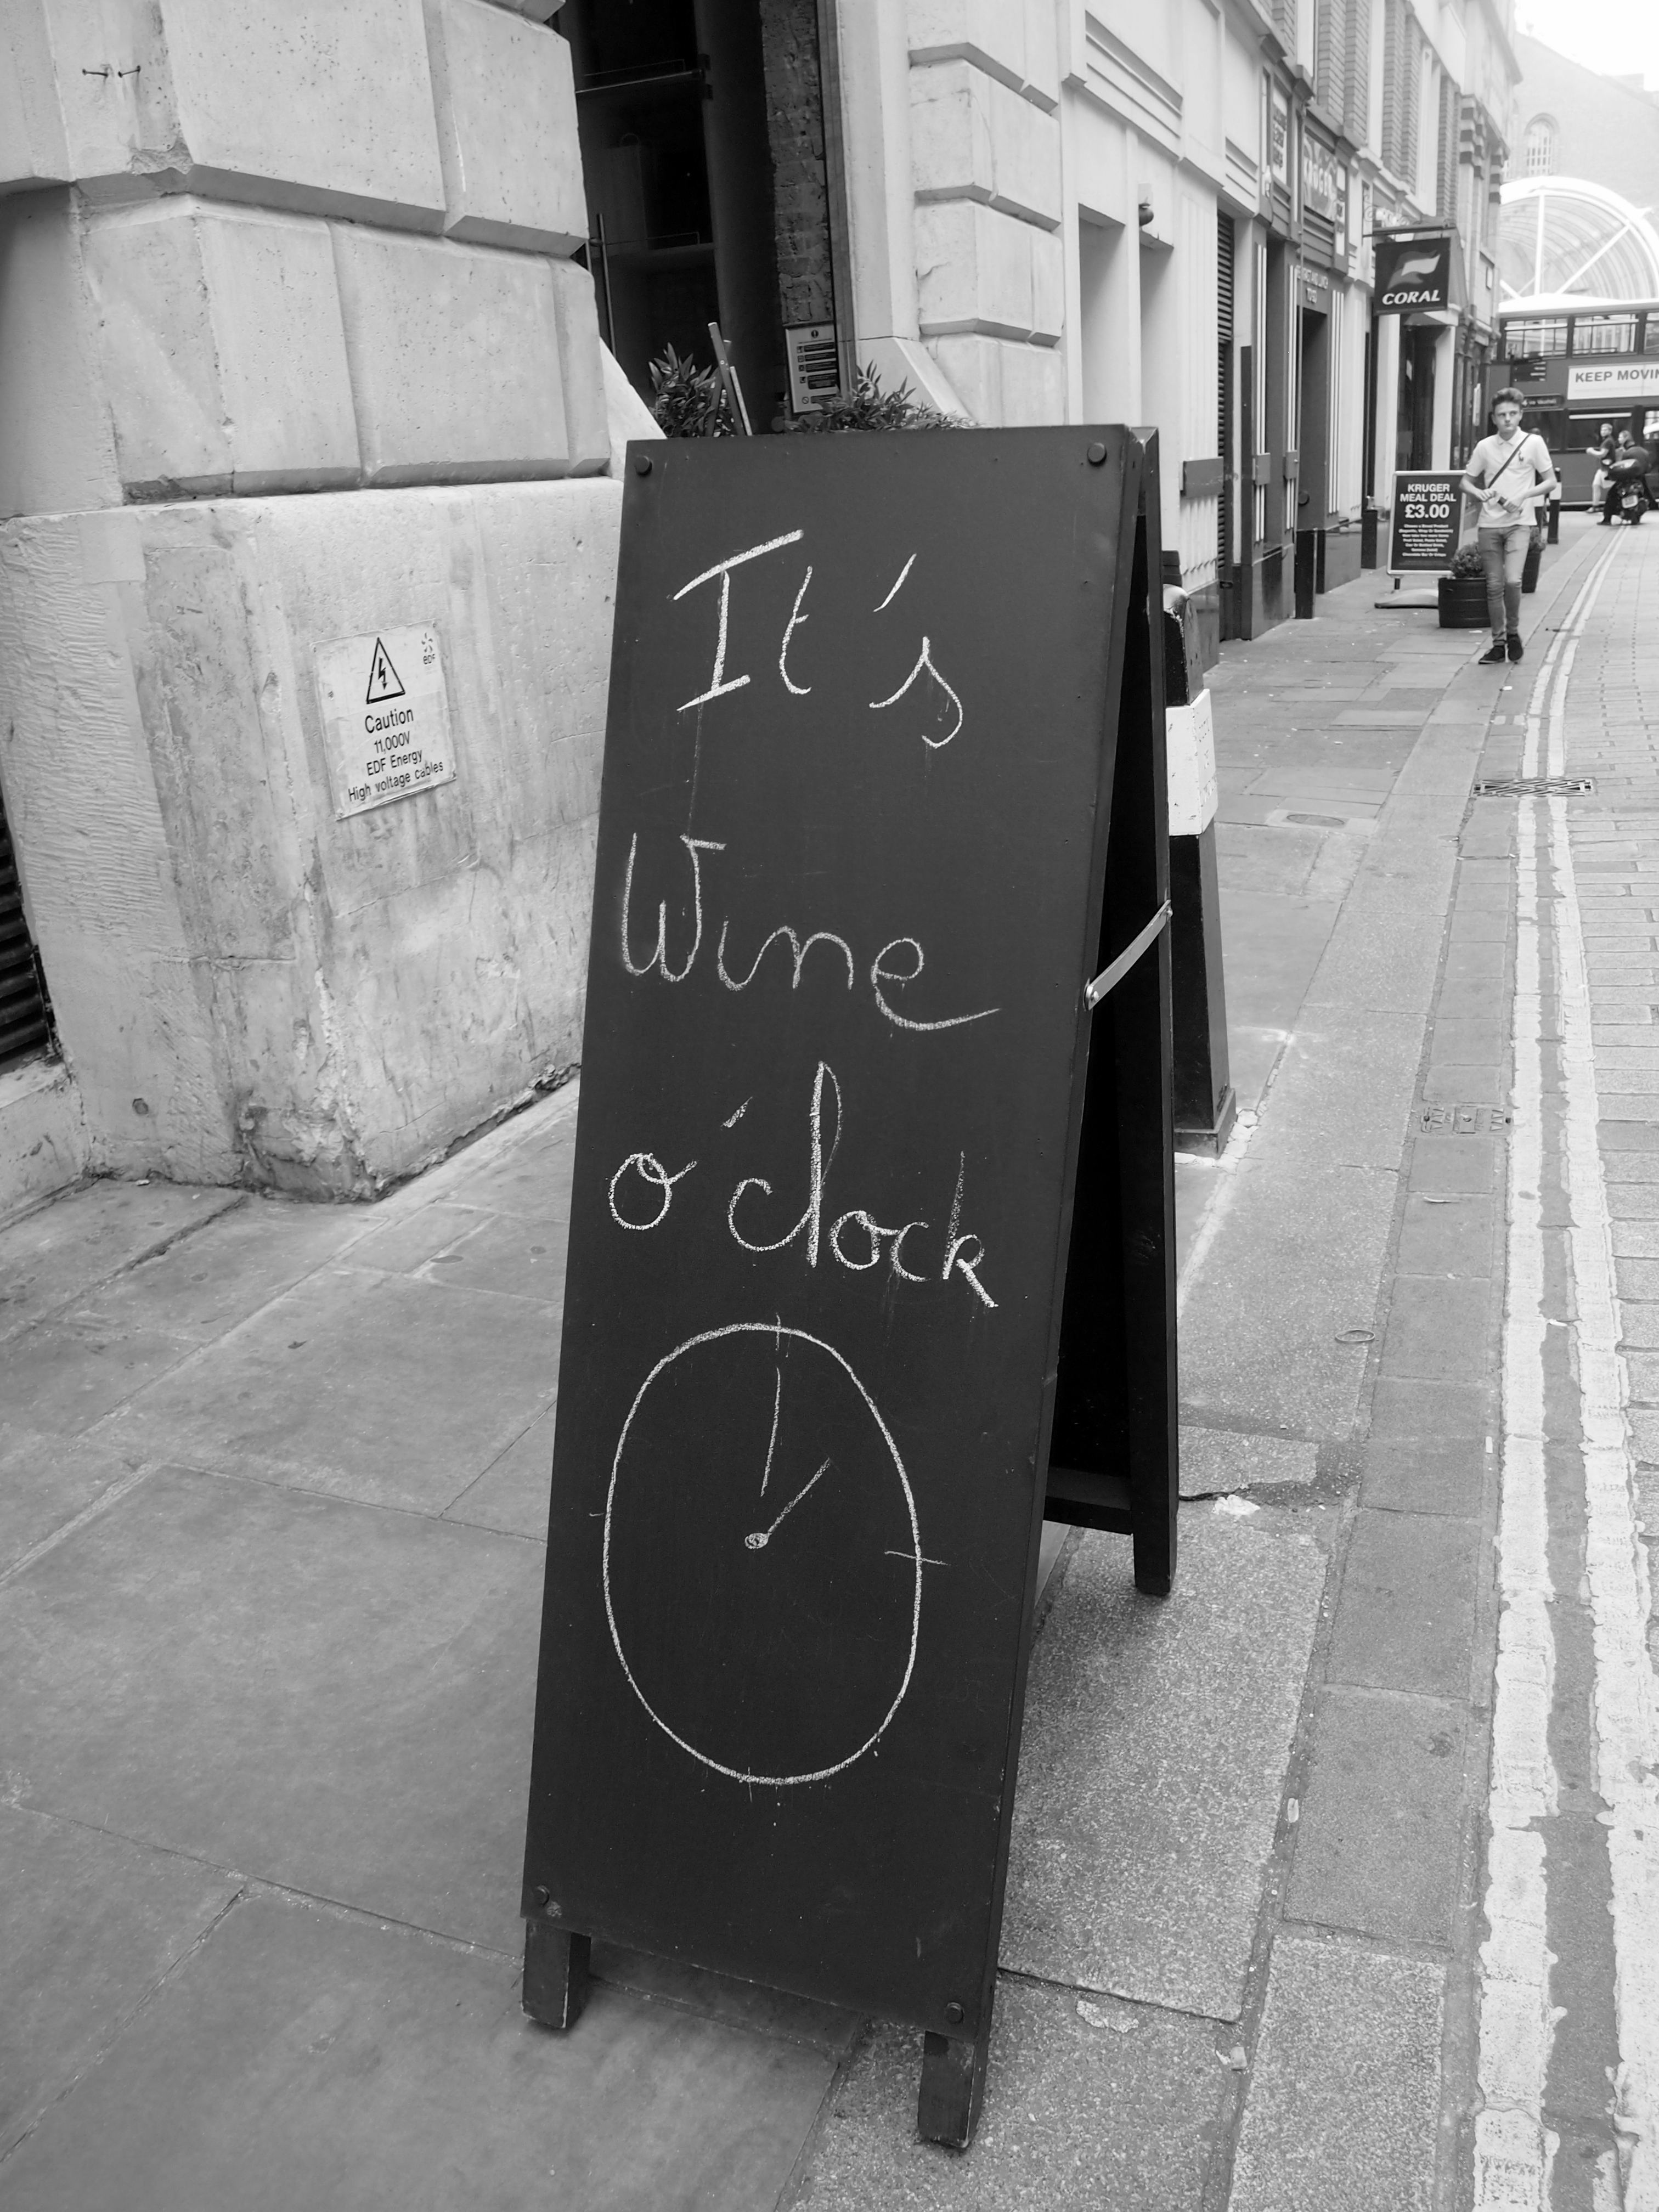 It's
Wine
o'clock
edf
Caution
11,000V
EDF Energy
High voltage cables
CORAL
KEEP MOVIN
KRUGER
MEAL DEAL
£3.00